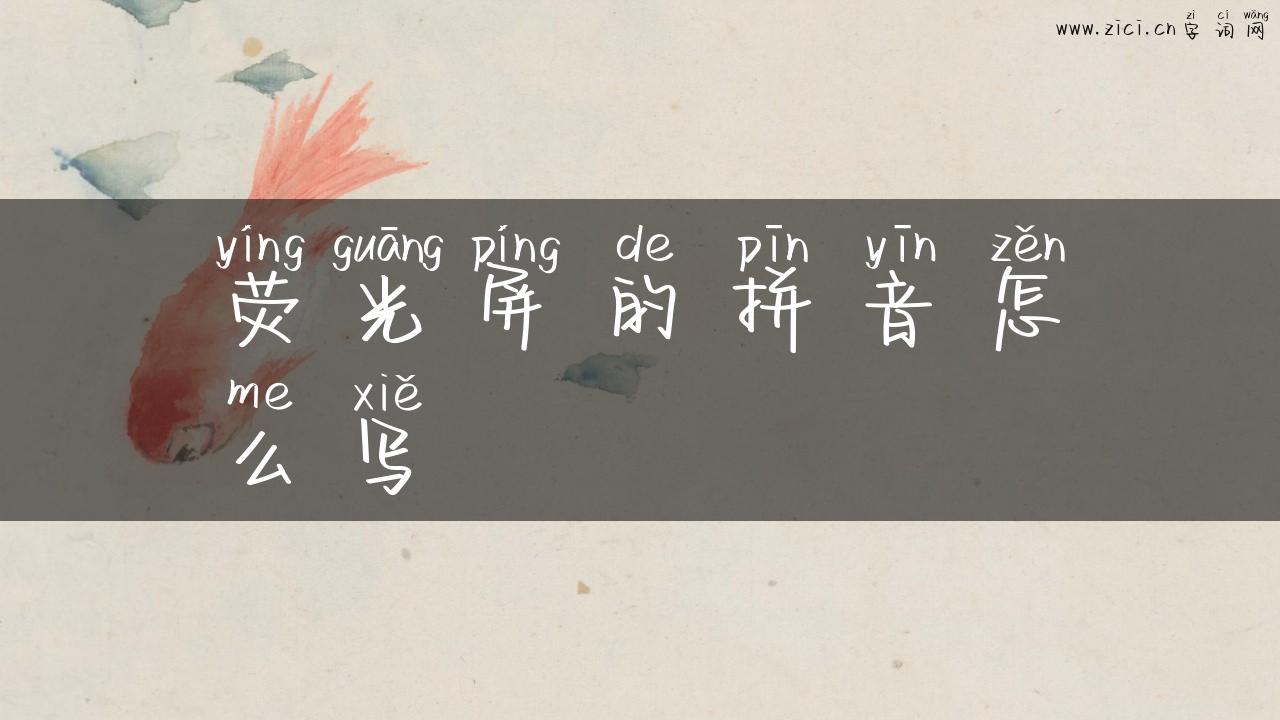 zì cí wǎng
www.zici.cn 字 词 网
yíng guāng píng de pīn yīn zěn
荧 光 屏 的 拼 音 怎
me xiě
么 写